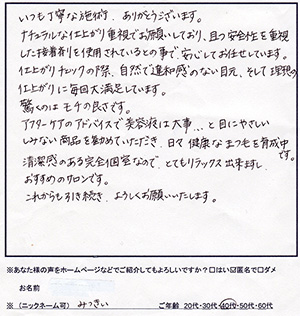 いつも丁寧な施術、ありがとうございます。
ナチュラルな仕上がり重視でお願いしており、且つ安全性を重視
した接着剤を使用されているとの事で、安心してお任せしています。
仕上がりチェックの際、自然で違和感のない目元、そして理想の
仕上がりに毎回大満足しています。
驚くのはモチの良さです。
アフターケアのアドバイスで美容液は大事…と目にやさしい
しみない商品を勧めていただき、日々健康なまつ毛を育成中
です。
清潔感のある完全個室なので、とてもリラックス出来ますし、
おすすめのサロンです。
これからも引き続き、よろしくお願いいたします。
※あなた様の声をホームページなどでご紹介してもよろしいですか？□はい☑匿名で□ダメ
お名前
※（ニックネーム可） みっきい ご年齢 20代・30代・40代・50代・60代